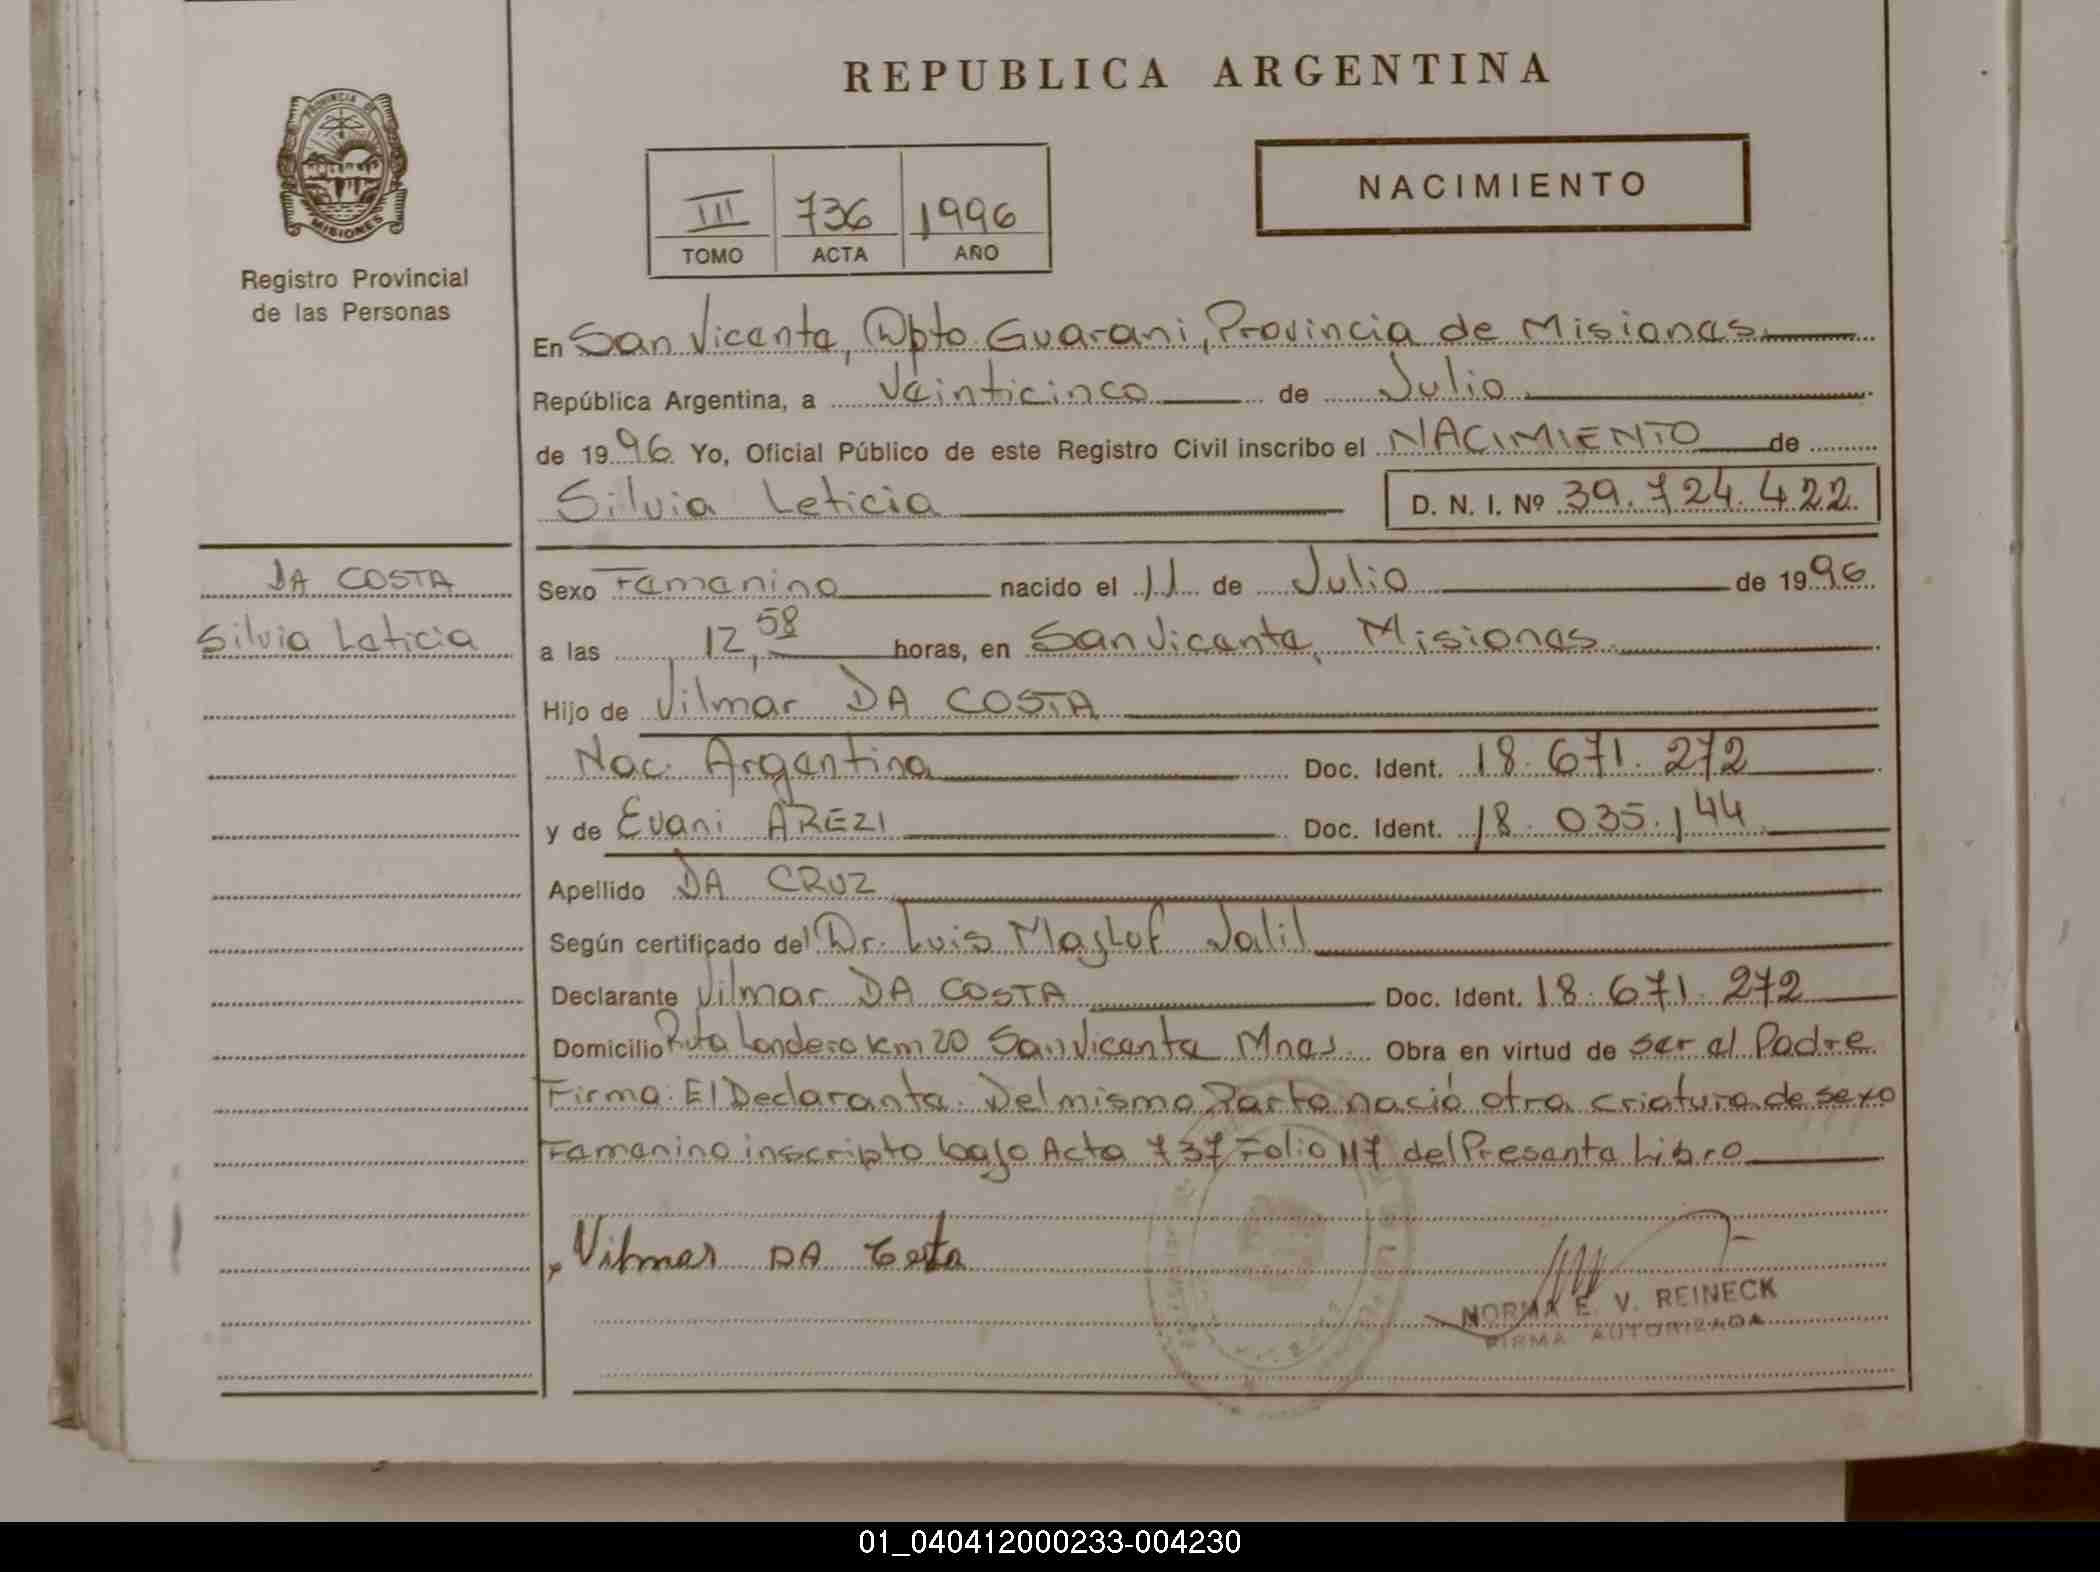 REPUBLICA ARGENTINA
PROVINCIA DE
MISIONES
Registro Provincial
de las Personas
III 736 1996
TOMO ACTA AÑO
NACIMIENTO
En San Vicente, Dpto. Guarani, Provincia de Misiones
República Argentina, a Veinticinco de Julio
de 1996 Yo, Oficial Público de este Registro Civil inscribo el NACIMIENTO de
Silvia Leticia D. N. I. Nº 39.724.422
DA COSTA
Silvia Leticia
Sexo Femenino nacido el 11 de Julio de 1996
a las 12,58 horas, en San Vicente, Misiones
Hijo de Vilmar DA COSTA
Nac. Argentina Doc. Ident. 18.671.272
y de Evani AREZI Doc. Ident. 18.035.144
Apellido DA CRUZ
Según certificado del Dr. Luis Masluf Jalil
Declarante Vilmar DA COSTA Doc. Ident. 18.671.272
Domicilio Ruta Londero Km 20 San Vicente Mnes. Obra en virtud de ser el Padre
Firma: El Declarante. Del mismo Parto nació otra criatura de sexo
Femenino inscripto bajo Acta 737 Folio 117 del Presente Libro
Vilmar DA Costa
NORMA E. V. REINECK
FIRMA AUTORIZADA
01_040412000233-004230